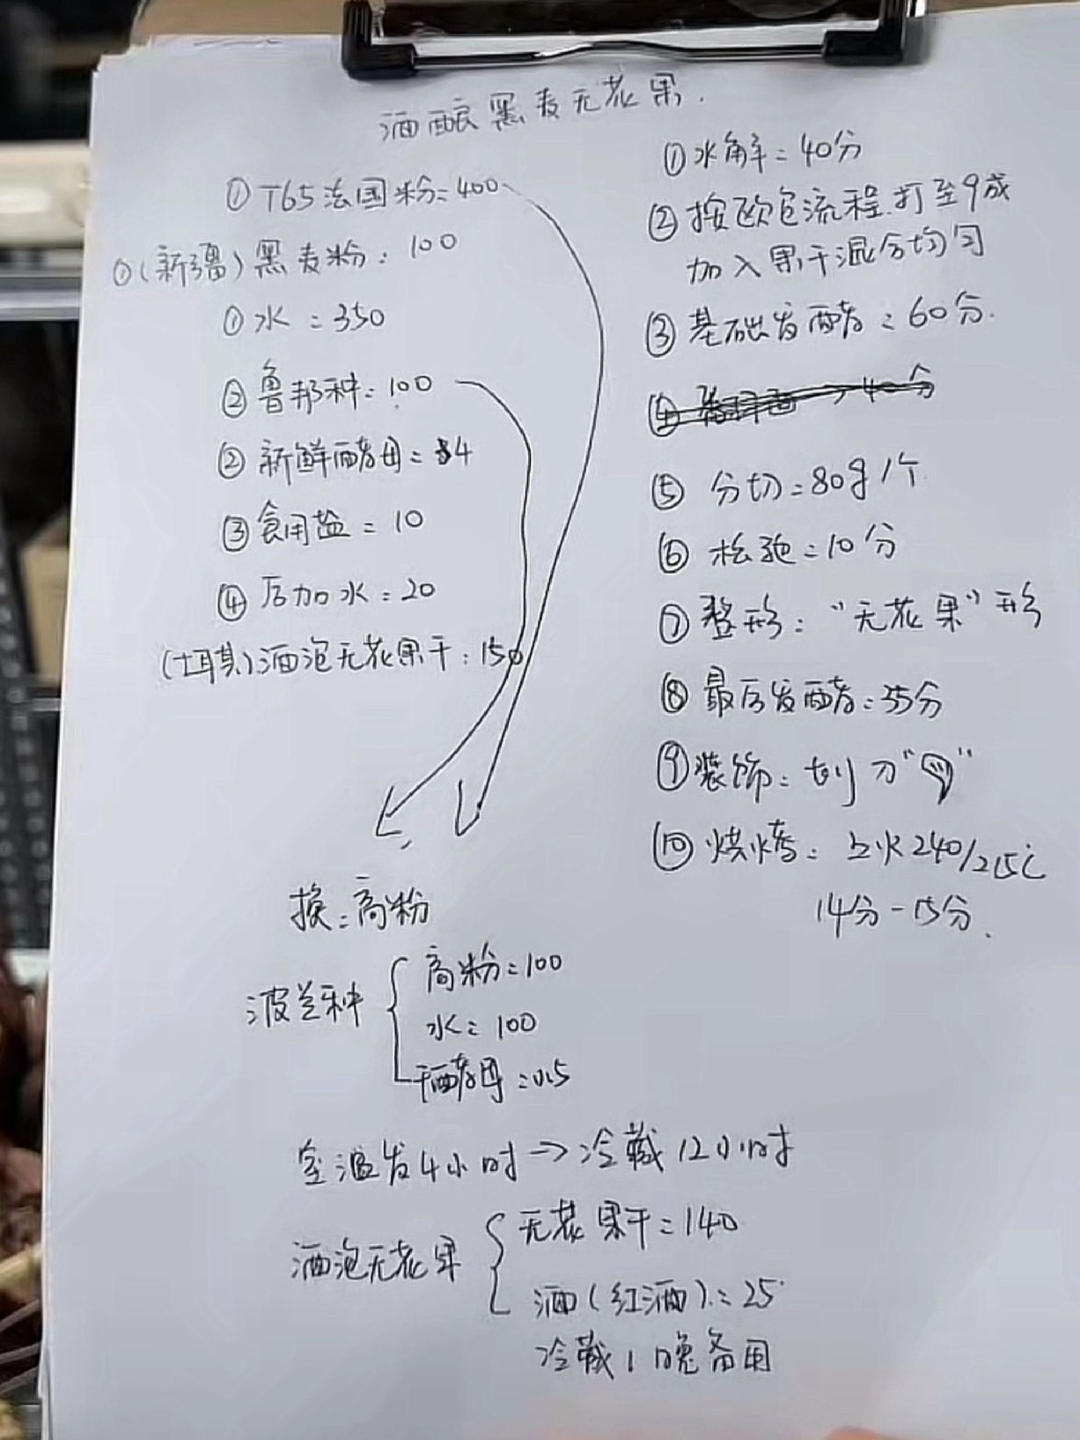 酒酿黑麦无花果.
①T65法国粉=400
①(新疆)黑麦粉:100
①水=350
②鲁邦种:100
②新鲜酵母=4
③食用盐=10
④后加水:20
(土耳其)酒泡无花果干:150
换:高粉
波兰种
高粉=100
水=100
干酵母=0.5
室温发4小时→冷藏12小时
酒泡无花果
无花果干=140
酒(红酒)=25
冷藏1晚备用
①水解=40分
②按欧包流程.打至9成
加入果干混合均匀
③基础发酵=60分.
⑤分切=80g/个
⑥松弛=10分
⑦整形:"无花果"形
⑧最后发酵:35分
⑨装饰:划刀" "
⑩烘烤:上火240/215℃
14分-15分.